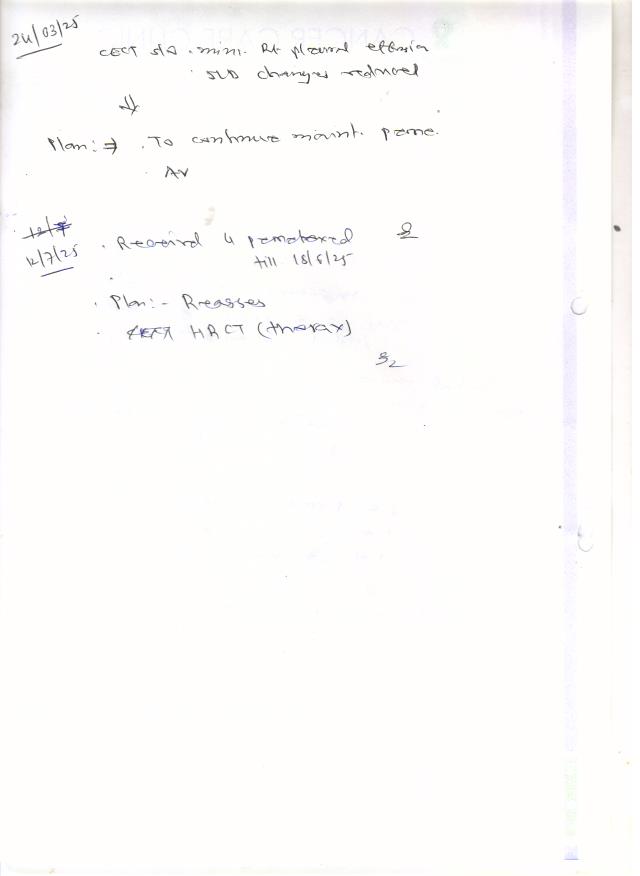 24/03/25
CECT s/o . mini. Rt pleural effusion
. SLD changes reduced
Plan: ⇒ . To continue maint. peme.
. AV
12/7
12/7/25 . Received 4 pemetrexed
till 18/6/25
. Plan:- Reasses
. CECT HRCT (thorax)